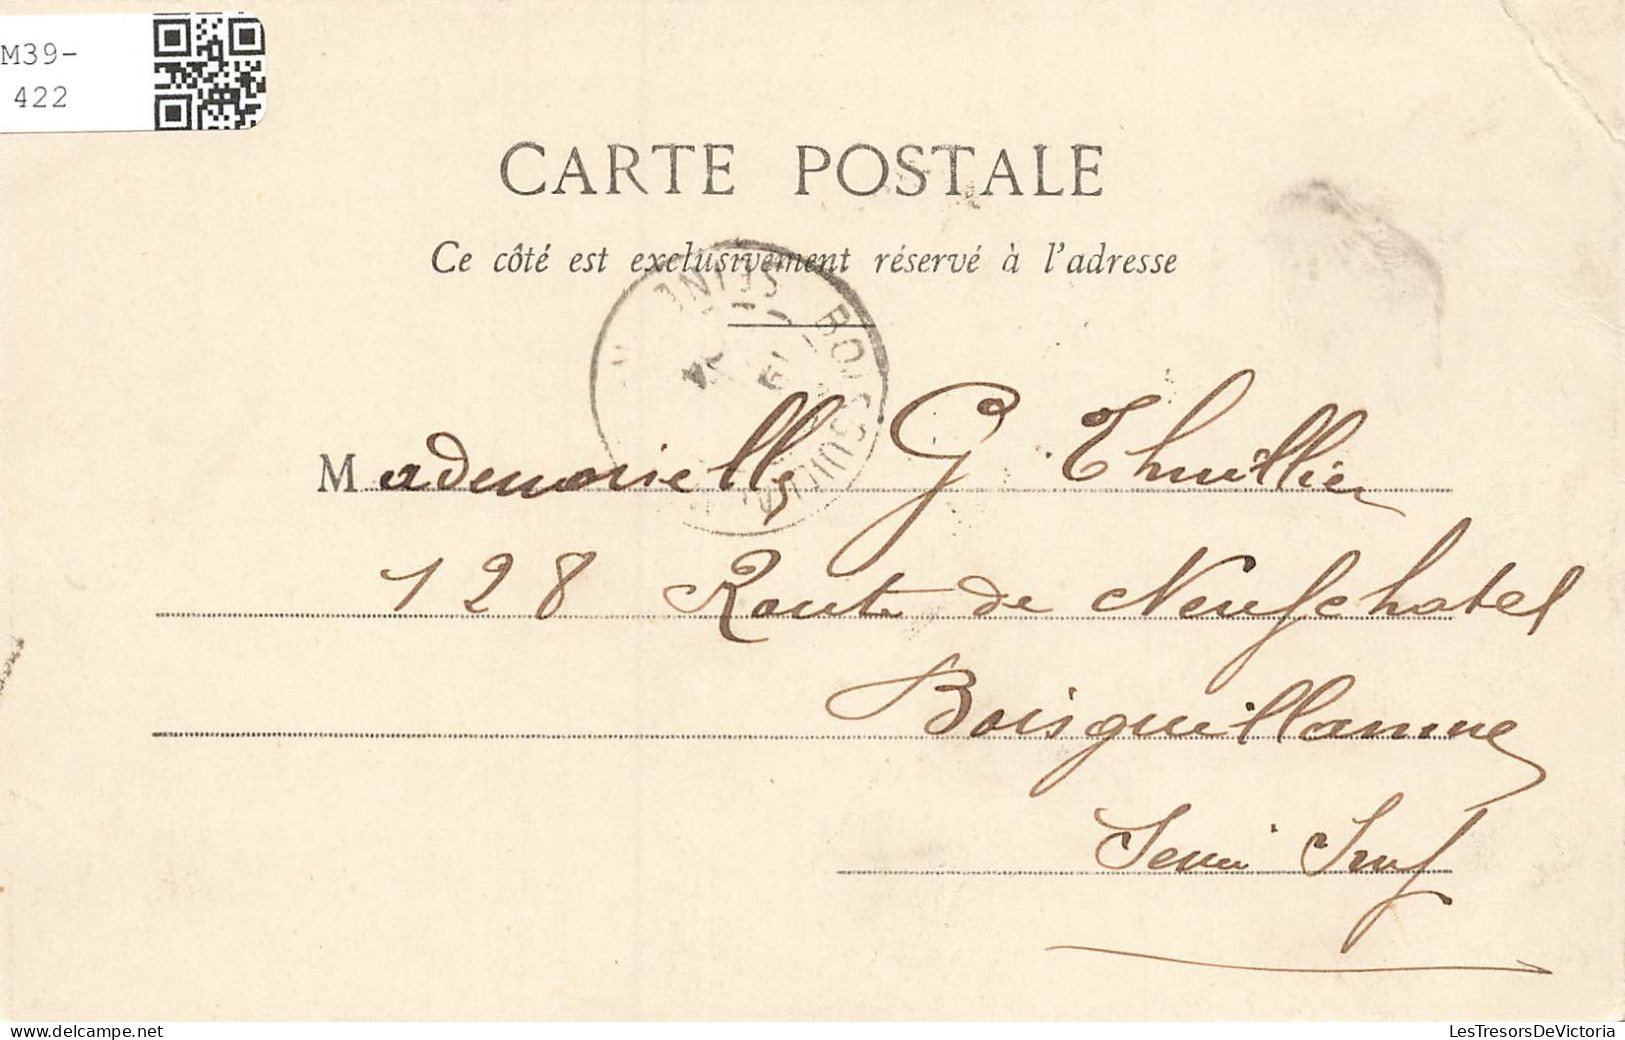 M39-
422
CARTE POSTALE
Ce côté est exclusivement réservé à l'adresse
Mademoiselle G Thuillier
128 Route de Neufchatel
Boisguillaume
Seine Inf
www.delcampe.net
LesTresorsDeVictoria